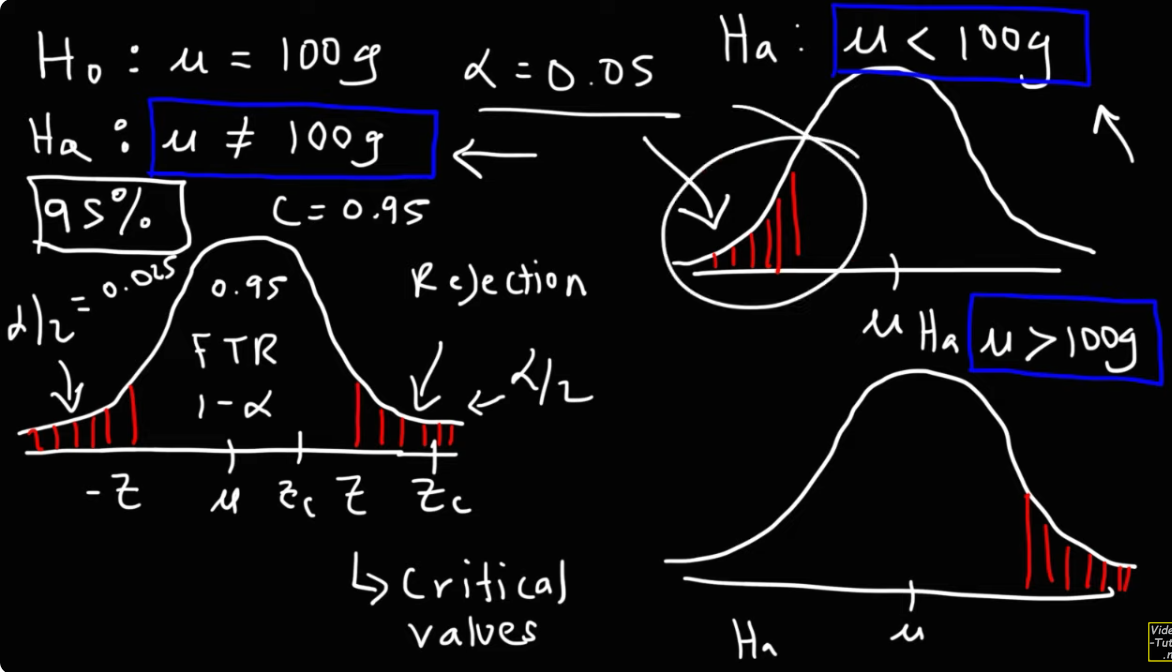 H₀ : μ = 100g
α = 0.05
Ha : μ ≠ 100g
95%
C = 0.95
α/2 = 0.025
0.95
FTR
1-α
Rejection
α/2
-Z
μ
Zc
Z
Zc
↳ Critical
values
Ha : μ < 100g
μ
Ha μ > 100g
μ
Ha